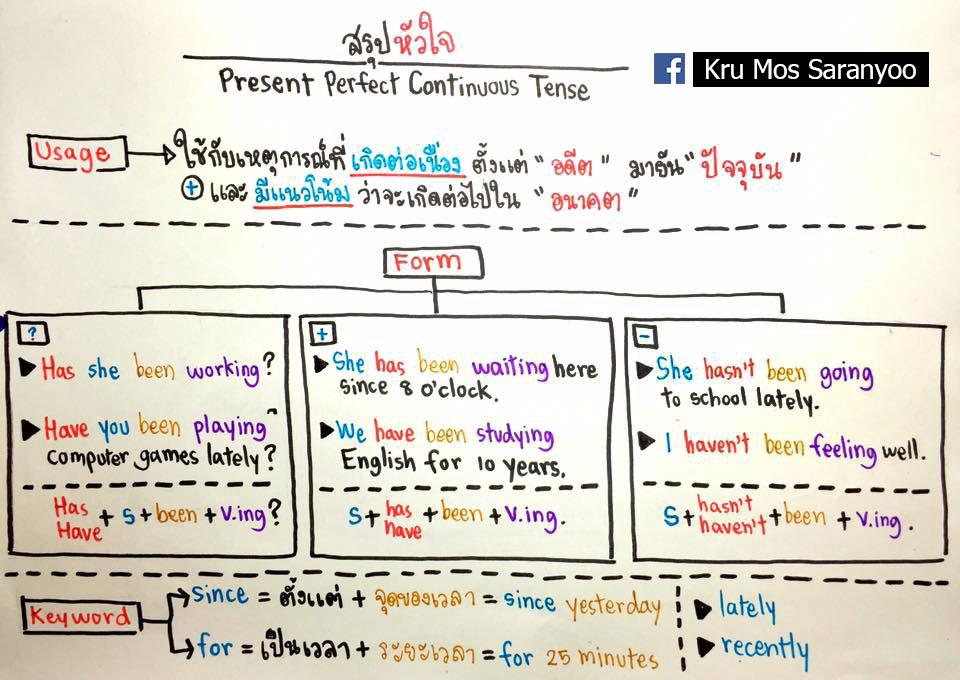 สรุปหัวใจ
Present Perfect Continuous Tense
Kru Mos Saranyoo
Usage → ใช้กับเหตุการณ์ที่ เกิดต่อเนื่อง ตั้งแต่ “อดีต” มายัน “ปัจจุบัน”
+ และ มีแนวโน้ม ว่าจะเกิดต่อไปใน “อนาคต”
Form
?
▶ Has she been working?
▶ Have you been playing
computer games lately?
Has
Have + S + been + V.ing?
+
▶ She has been waiting here
since 8 o'clock.
▶ We have been studying
English for 10 years.
S + has
have + been + V.ing.
-
▶ She hasn't been going
to school lately.
▶ I haven't been feeling well.
S + hasn't
haven't + been + V.ing.
Keyword
since = ตั้งแต่ + จุดของเวลา = since yesterday
for = เป็นเวลา + ระยะเวลา = for 25 minutes
▶ lately
▶ recently